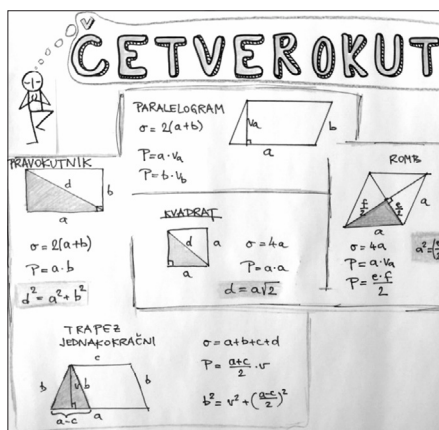 ČETVEROKUT
PARALELOGRAM
σ = 2(a+b)
P = a · va
P = b · vb
va
b
a
PRAVOKUTNIK
d
b
a
σ = 2(a+b)
P = a · b
d² = a² + b²
KVADRAT
d
a
a
σ = 4a
P = a · a
d = a√2
ROMB
f/2
e/2
a
a
σ = 4a
P = a · va
P = e · f / 2
a² = (
TRAPEZ
JEDNAKOKRAČNI
c
b
v
b
b
a-c
a
σ = a+b+c+d
P = a+c / 2 · v
b² = v² + (a-c / 2)²